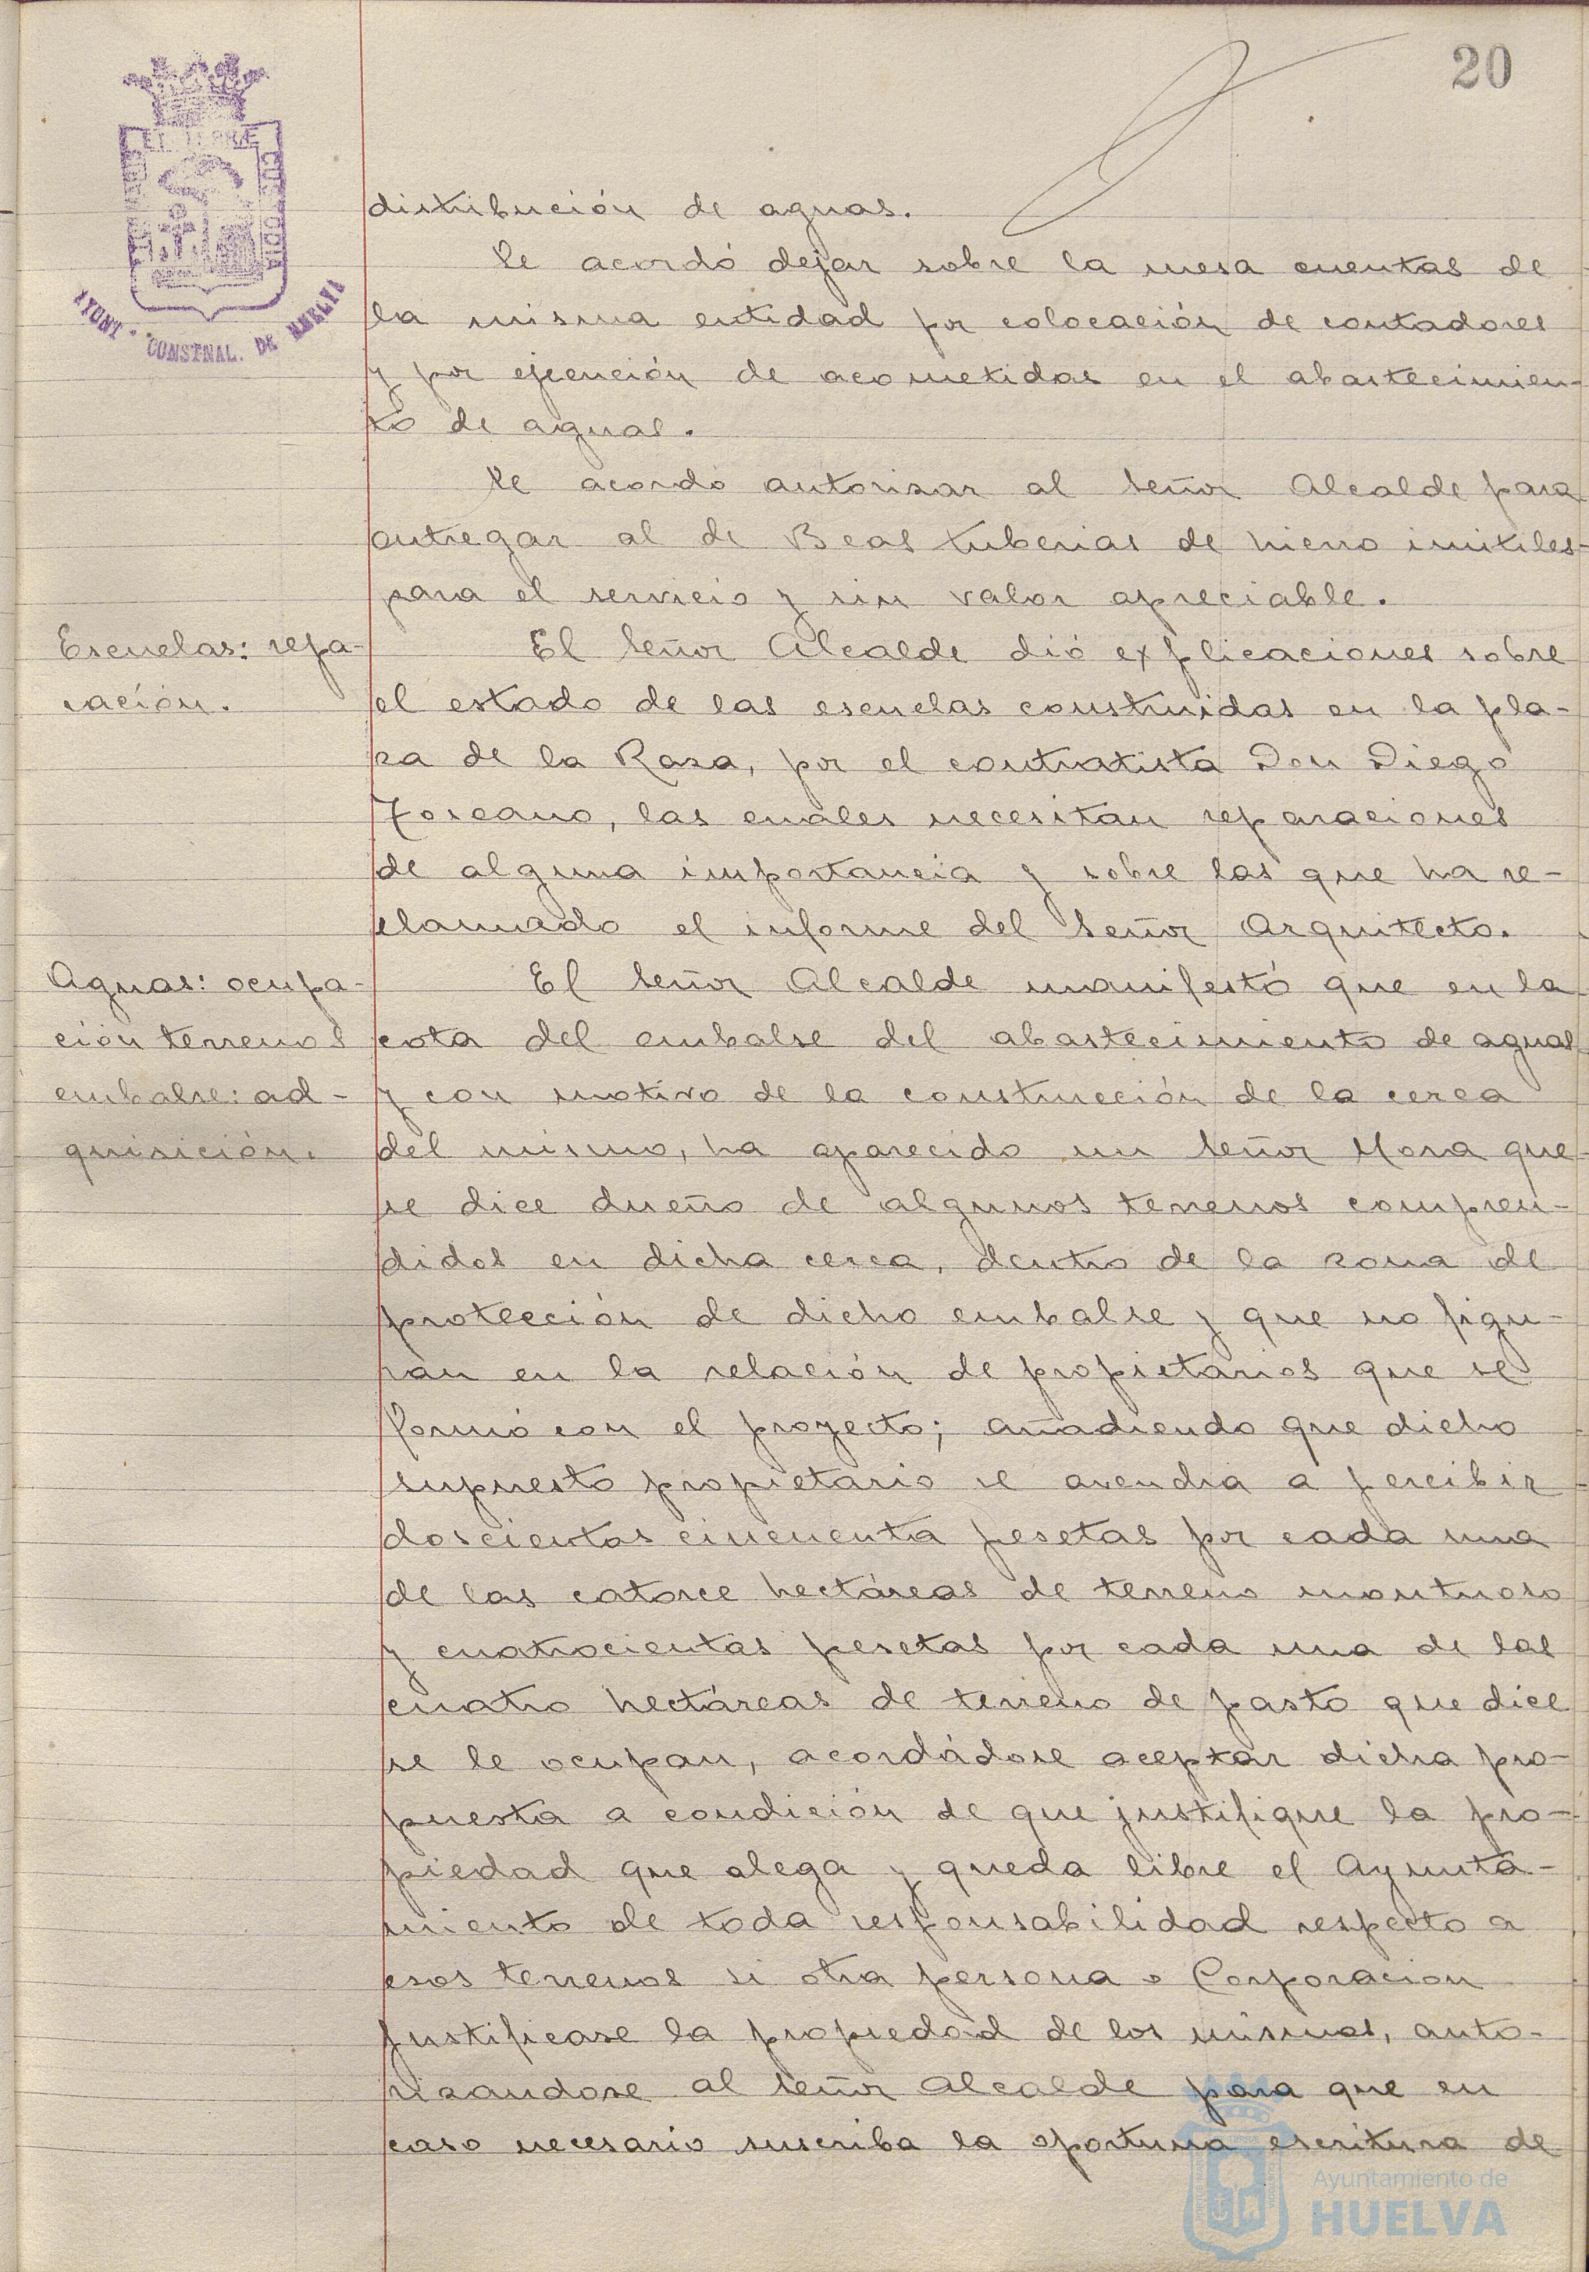 20
PORTUS MARIS
ET TERRÆ
CUSTODIA
AYUNT. CONSTNAL. DE HUELVA
distribución de aguas.
Se acordó dejar sobre la mesa cuentas de
la misma entidad por colocación de contadores
y por ejecución de acometidas en el abastecimien-
to de aguas.
Se acordó autorizar al Señor Alcalde para
entregar al de Beas tuberias de hierro inútiles
para el servicio y sin valor apreciable.
Escuelas: repa-
ración.
El Señor Alcalde dió explicaciones sobre
el estado de las escuelas construidas en la pla-
za de la Raza, por el contratista Don Diego
Toscano, las cuales necesitan reparaciones
de alguna importancia y sobre las que ha re-
clamado el informe del Señor Arquitecto.
Aguas: ocupa-
ción terrenos
embalse: ad-
quisición.
El Señor Alcalde manifestó que en la
cota del embalse del abastecimiento de aguas
y con motivo de la construcción de la cerca
del mismo, ha aparecido un Señor Mora que
se dice dueño de algunos terrenos compren-
didos en dicha cerca, dentro de la zona de
protección de dicho embalse y que no figu-
ran en la relación de propietarios que se
formó con el proyecto; añadiendo que dicho
supuesto propietario se avendria a percibir
doscientas cincuenta pesetas por cada una
de las catorce hectáreas de terreno montuoso
y cuatrocientas pesetas por cada una de las
cuatro hectáreas de terreno de pasto que dice
se le ocupan, acordádose aceptar dicha pro-
puesta a condición de que justifique la pro-
piedad que alega y queda libre el Ayunta-
miento de toda responsabilidad respecto a
esos terrenos si otra persona o Corporacion
justificase la propiedad de los mismos, auto-
rizandose al Señor Alcalde para que en
caso necesario suscriba la oportuna escritura de
Ayuntamiento de
HUELVA